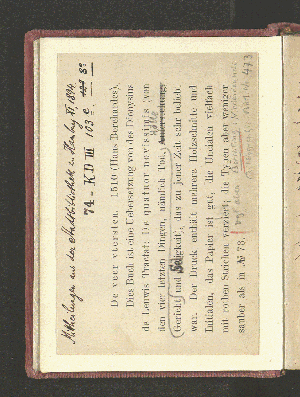 Mittheilungen aus der Stadtbibliothek zu Hamburg XI, 1894.
74 - KD III 103 e 8°
De veer vtersten. 1510 (Hans Borchardes).
Dies Buch ist eine Uebersetzung von des Dionysius
de Leuwis Tractat: De quatuor novissimis (von
den vier letzten Dingen, nämlich Tod, Auferstehung
Gericht und Seligkeit), das zu jener Zeit sehr beliebt
war. Der Druck enthält mehrere Holzschnitte und
Initialen, das Papier ist gut, die Uncialen vielfach
mit rothen Strichen verziert; die Typen aber weniger
sauber als in № 78.